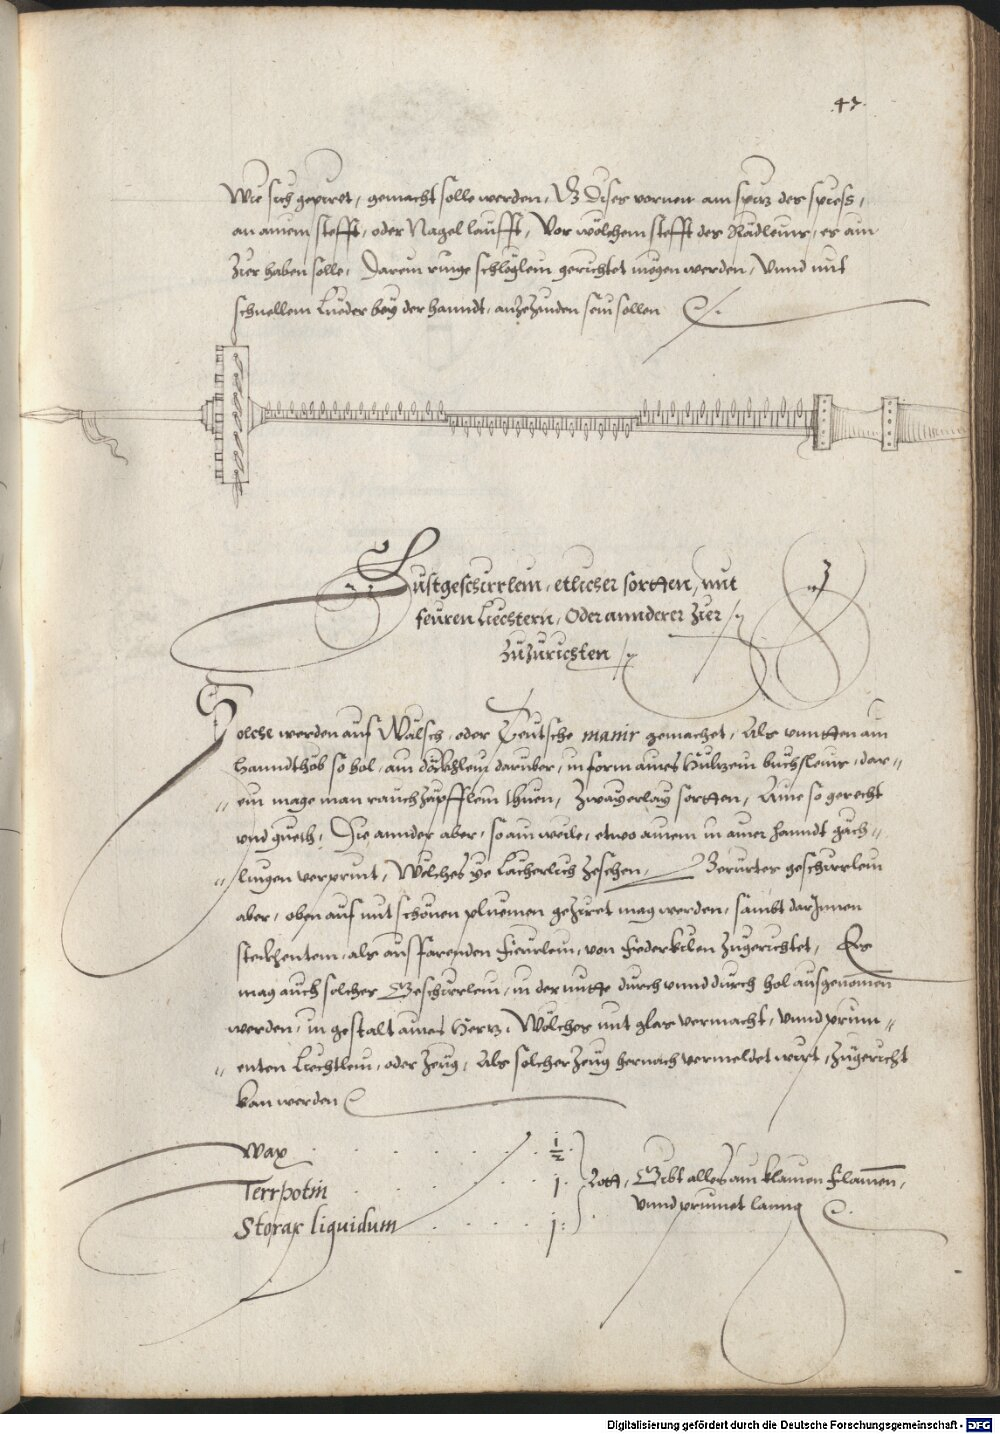 47.
Wie sich gepüret, gemacht solle werden, Das Dises vornen am spitz des spiess,
an ainem stefft, oder Nagel laufft, Vor wölchem stefft des Rädleins, er ain
Zier haben solle, Darein ringe schleglein gerichtet mögen werden, Vnnd mit
schnellem Lueder bey der hanndt, anzezinden sein sollen
Lustgeschirrlein, etlicher sortten, mit
feuren Liechtern, Oder annderer Zier
Zuzurichten
Solche werden auf Wälsch, oder Teutsche manir gemachet, Als vnntten ain
Hanndthöb so hol, ain döckhlein darüber, in form aines Hültzein büchsleins, dar=
= ein mage man rauchzäpfflein thuen, Zwayerlay sortten, Aine so gerecht
vnd gueth, Die annder aber, so ain weile, etwo ainem in ainer hanndt gäch=
= lingen verprint, Wölches ye Lächerlich zesehen, Berürtes geschirrlein
aber, oben auf mit schönen pluemen geziret mag werden, sambt darInnen
steckhenten, als aus farenden Feürlein, von Federkilen Zugerichtet, Es
mag auch solches Geschirrlein, in der mitte durch vnnd durch hol ausgenomen
werden, in gestalt aines Hertz, Wölches mit glas vermacht, vnnd prinn=
= enten Liechtlein, oder Zeug, Als solcher Zeug hernach vermeldet wirt, Zugericht
kan werden
Wax . . . . . . ½ .
Terrpotin . . . . . . 1 . Lott, Gibt alles ain klainen Flamen,
Storax liquidum . . . . 1 : vnnd prinnet lanng
Digitalisierung gefördert durch die Deutsche Forschungsgemeinschaft - DFG